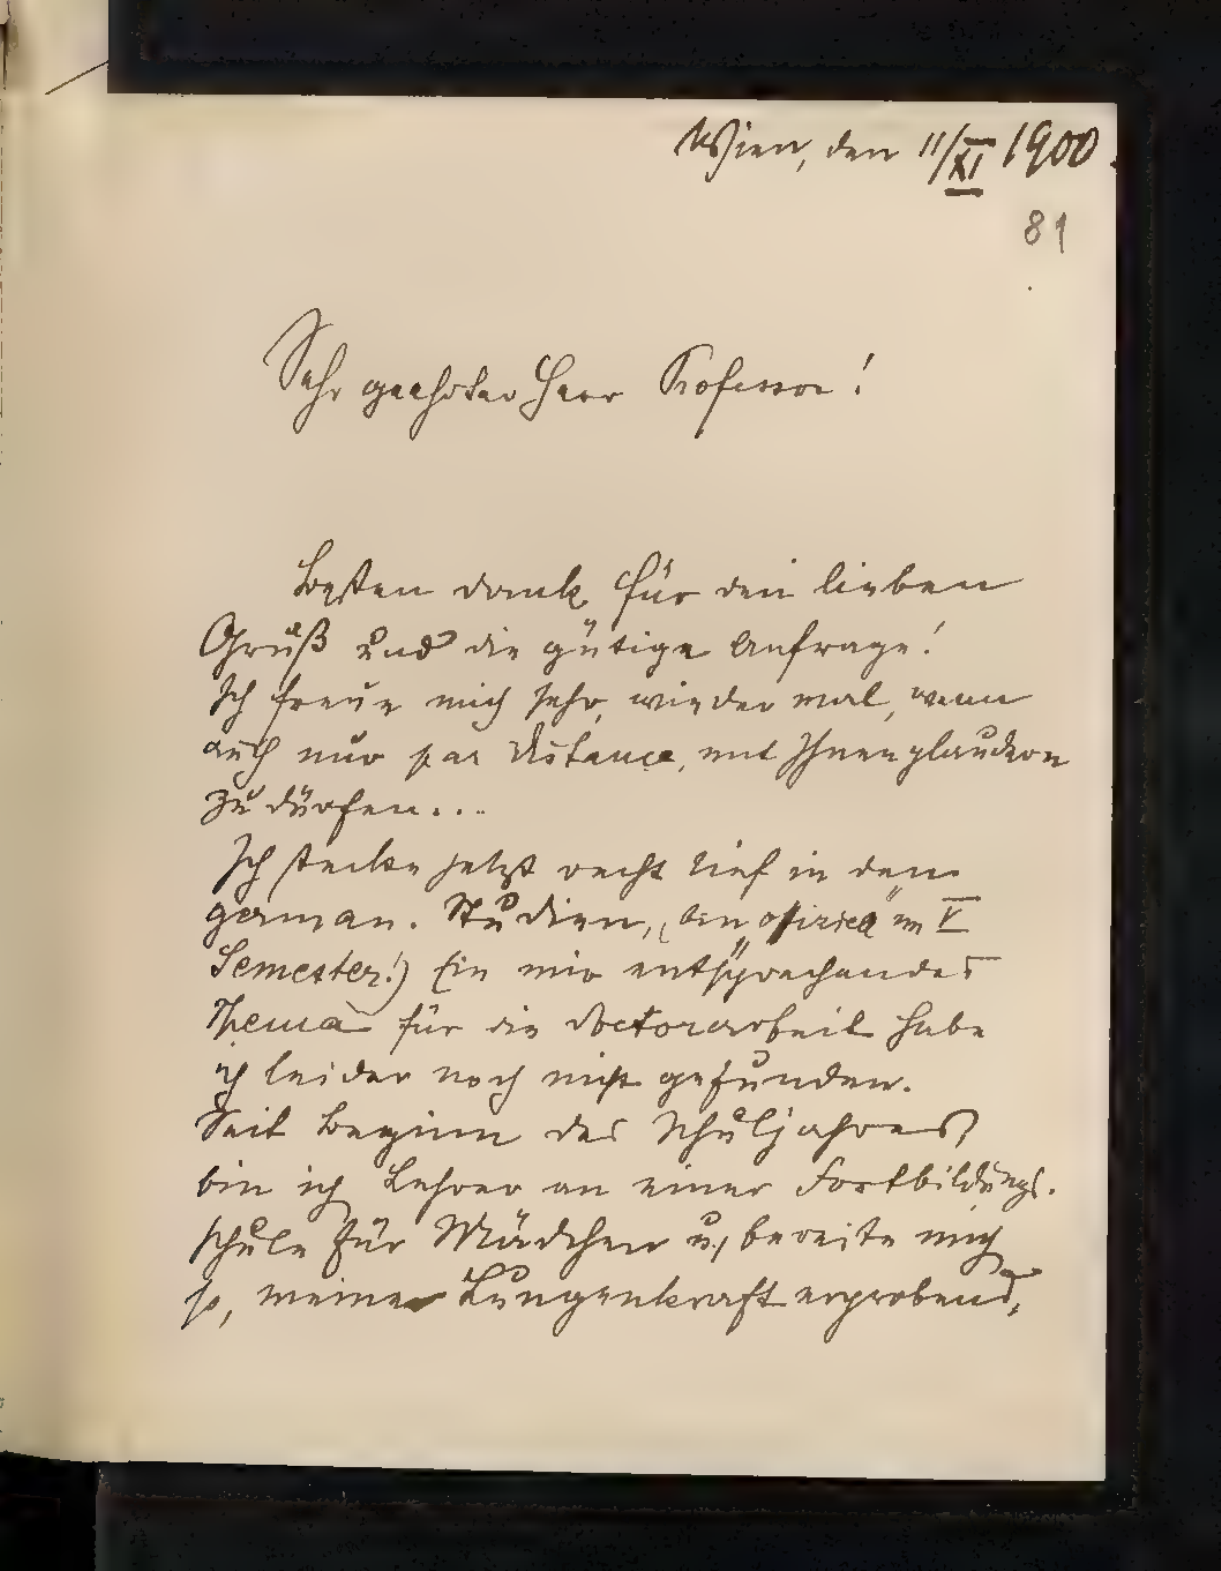 Wien, den 11/XI 1900.
81
Sehr geehrter Herr Professor!
Besten Dank für den lieben
Gruß und die gütige Anfrage!
Ich freue mich sehr, wieder mal, wenn
auch nur par distance, mit Ihnen plaudern
zu dürfen...
Ich stecke jetzt recht tief in den
german. Studien, (bin im V
Semester!) Ein mir entsprechendes
Thema für die Doctorarbeit habe
ich leider noch nicht gefunden.
Seit Beginn des Schuljahres
bin ich Lehrer an einer Fortbildungs-
schule für Mädchen u. bereite mich
so, meine Lungenkraft erprobend,